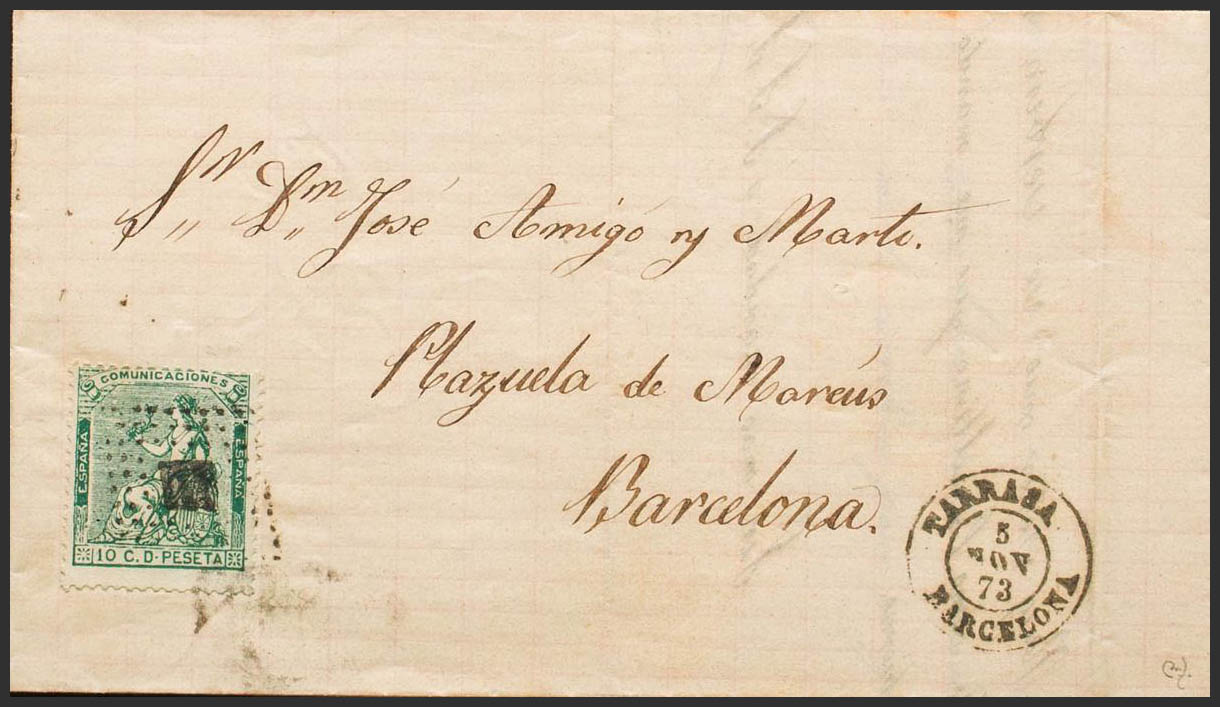 Sr,, Dn,, José Amigó y Marti.
Plazuela de Marcús
Barcelona.
COMUNICACIONES
ESPAÑA
ESPAÑA
10 C. D. PESETA
TARRASA
5
NOV
73
BARCELONA